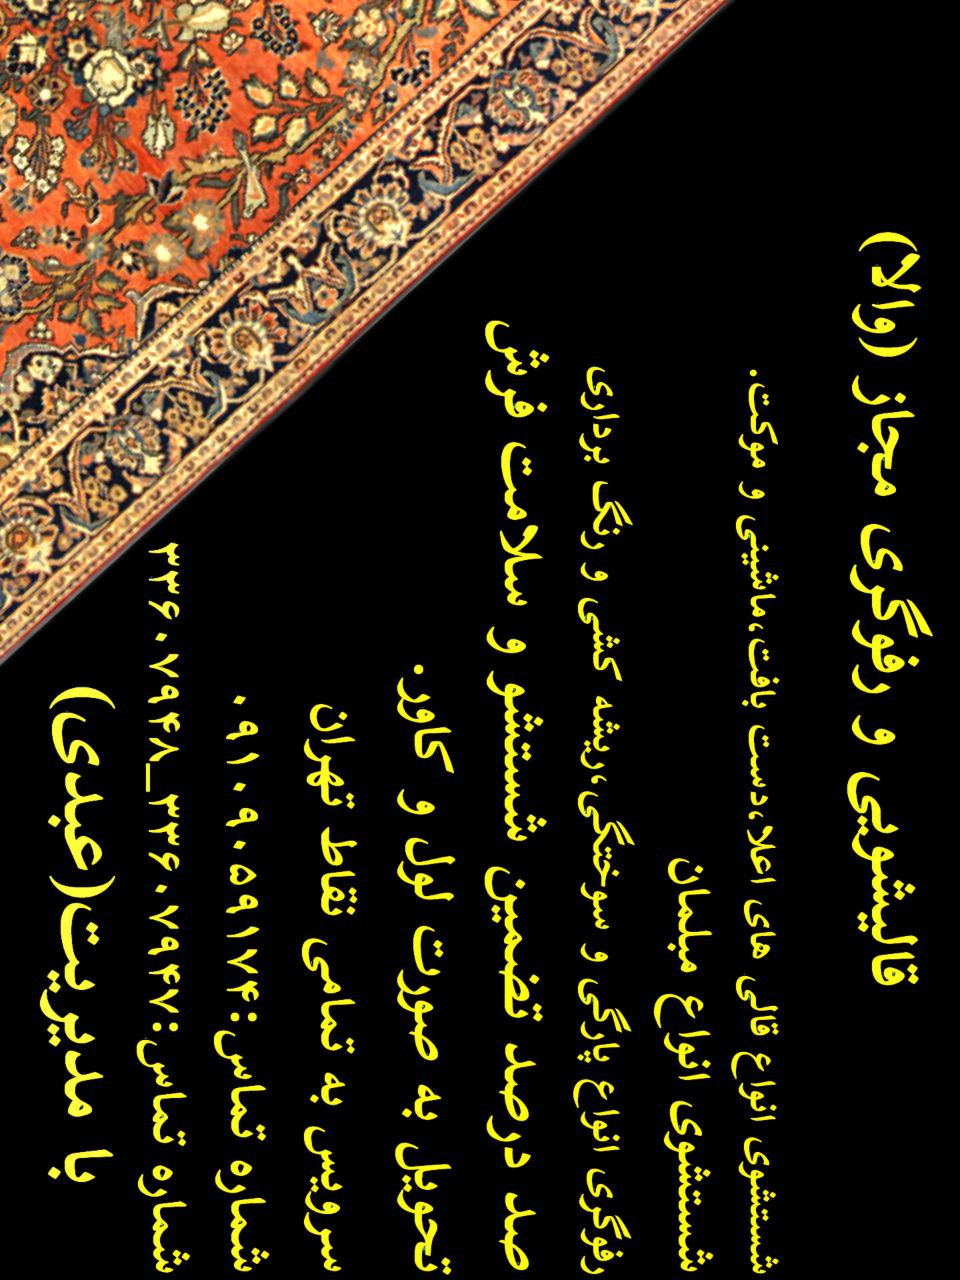 قالیشویی و رفوگری مجاز (والا)
شستشوی انواع قالی های اعلا،دست بافت،ماشینی و موکت.
شستشوی انواع مبلمان
رفوگری انواع پارگی و سوختگی،ریشه کشی و رنگ برداری
صد درصد تضمین شستشو و سلامت فرش
تحویل به صورت لول و کاور.
سرویس به تمامی نقاط تهران
شماره تماس:۰۹۱۰۹۰۵۹۱۷۴
شماره تماس:۳۳۶۰۷۹۴۷_۳۳۶۰۷۹۴۸
با مدیریت(عبدی)